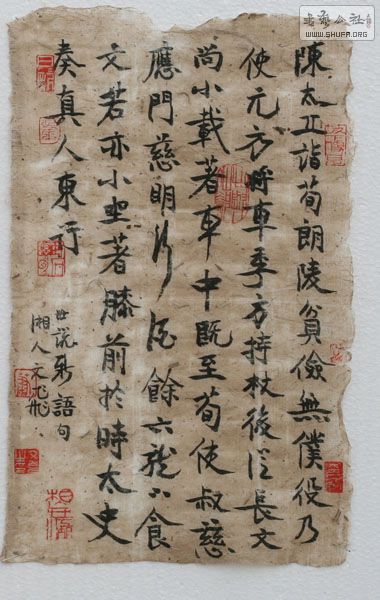 陳太丘詣荀朗陵貧儉無僕役乃
使元方將車季方持杖後從長文
尚小載著車中既至荀使叔慈
應門慈明行酒餘六龍下食
文若亦小坐著膝前於時太史
奏真人東行
世說新語句
湘人文
公社
WWW.SHUFA.ORG